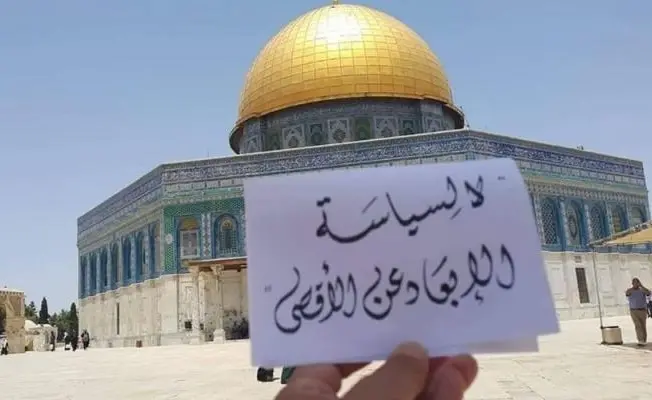 "لا لِسياسَة
الإبعَاد عن الأقصَى"